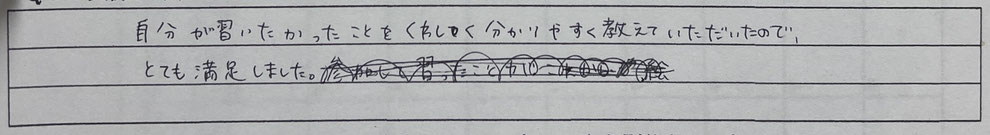 自分が習いたかったことをくわしく分かりやすく教えていただいたので、
とても満足しました。